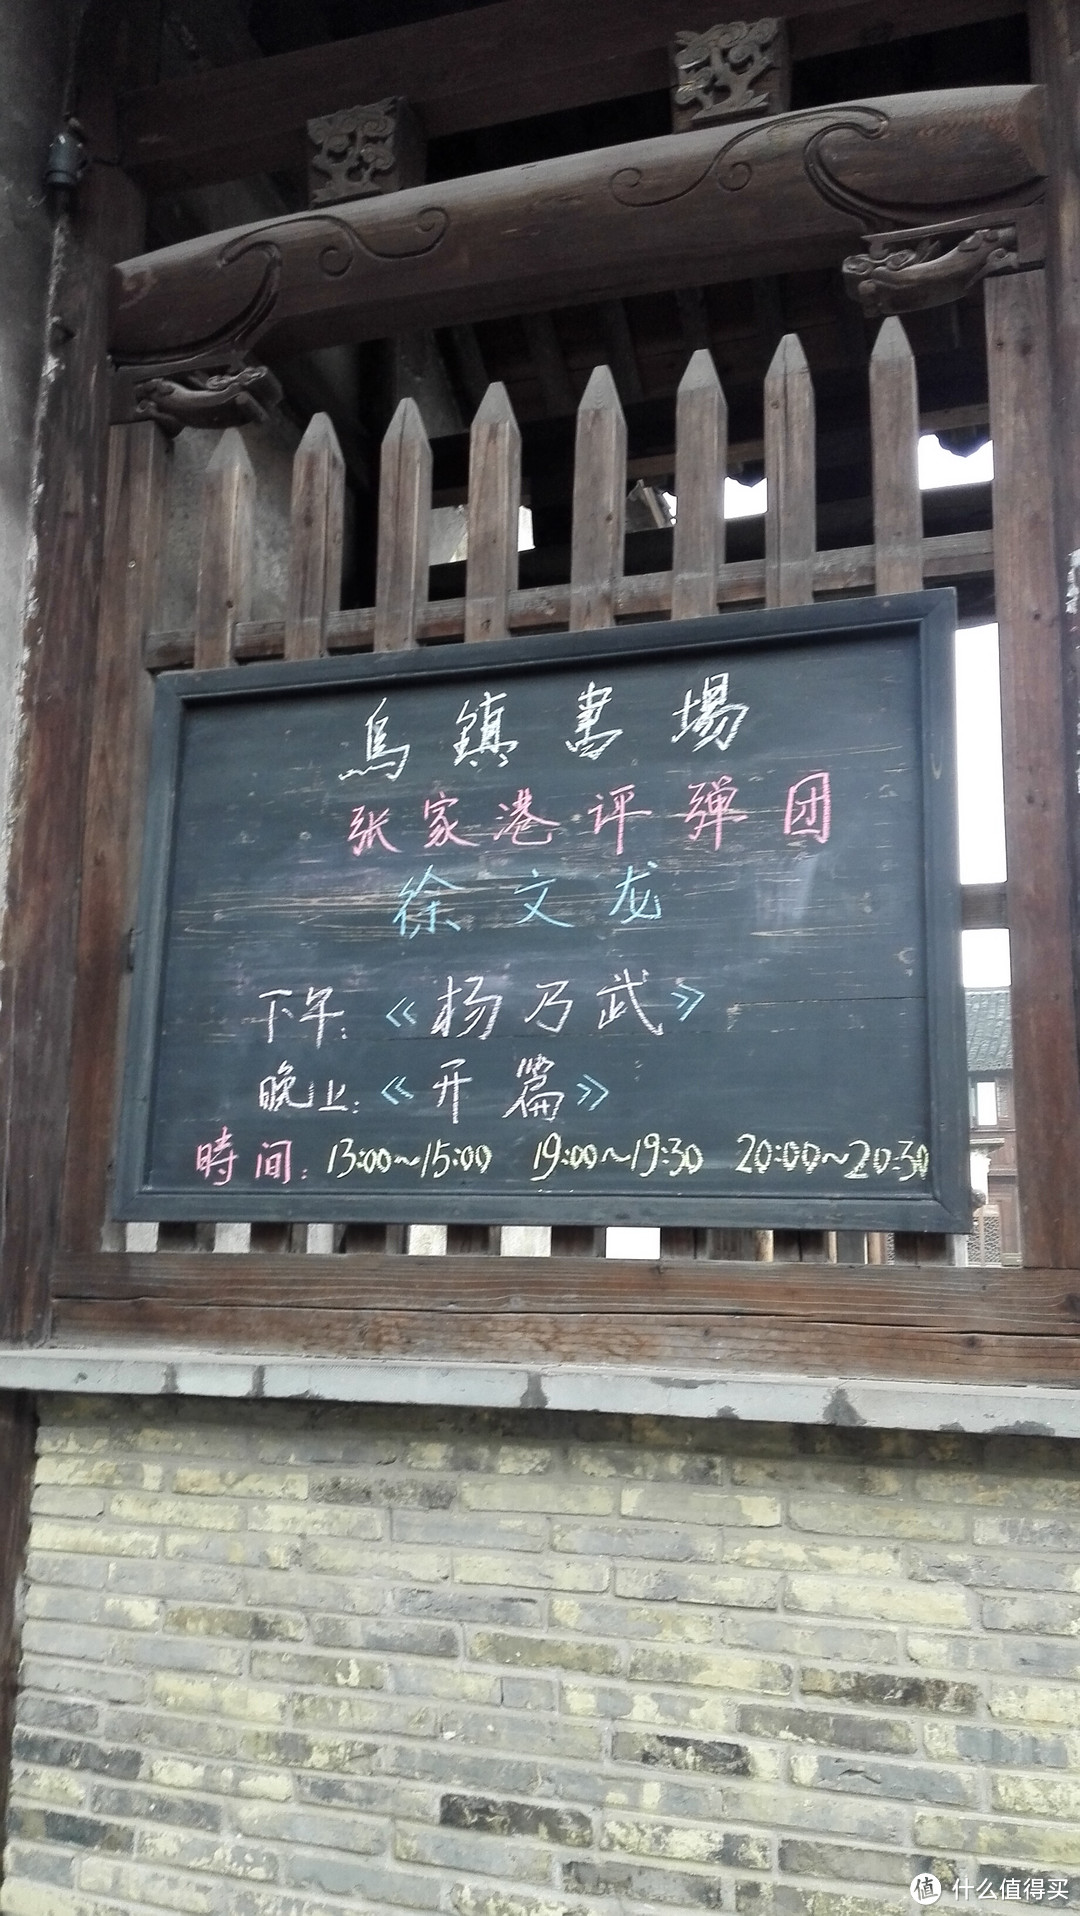 烏鎮書場
张家港评弹团
徐文龙
下午:《杨乃武》
晚上:《开篇》
時间: 13:00~15:00 19:00~19:30 20:00~20:30
值 什么值得买